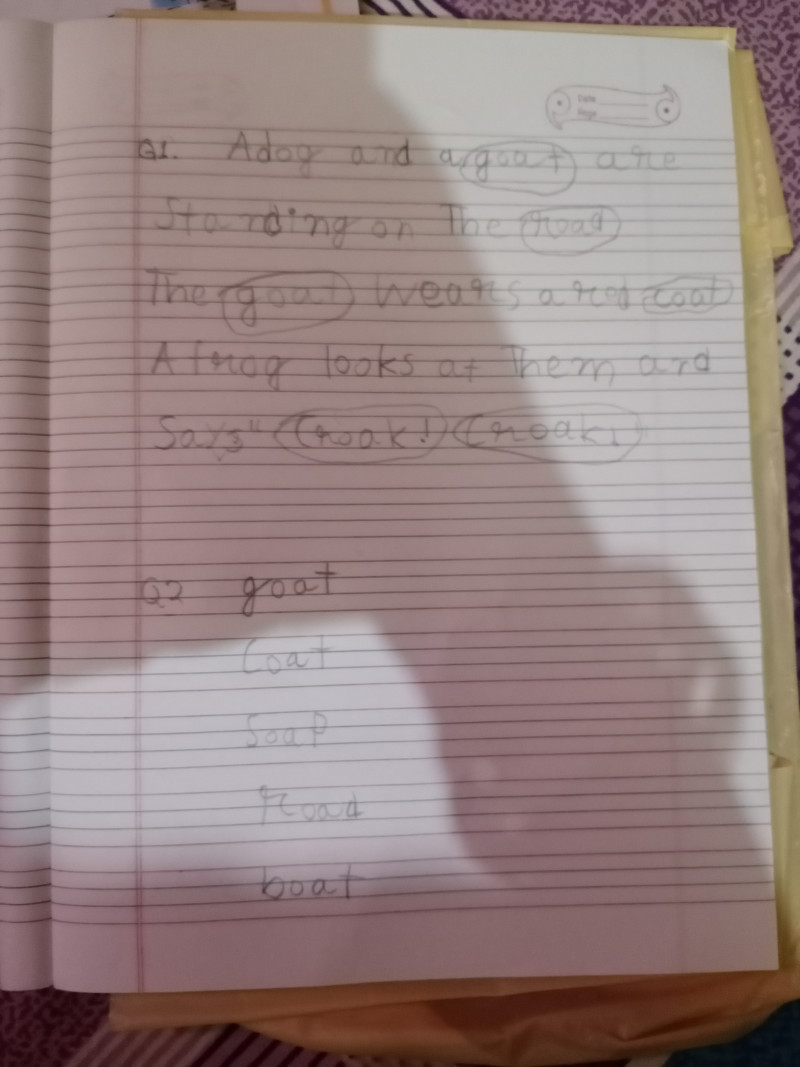 Date
Page
Q1. Adog and a goat are
Standing on The road
The goat wears a red coat
A frog looks at Them and
Says" Croak! Croak!
Q2 goat
Coat
Soap
Road
boat